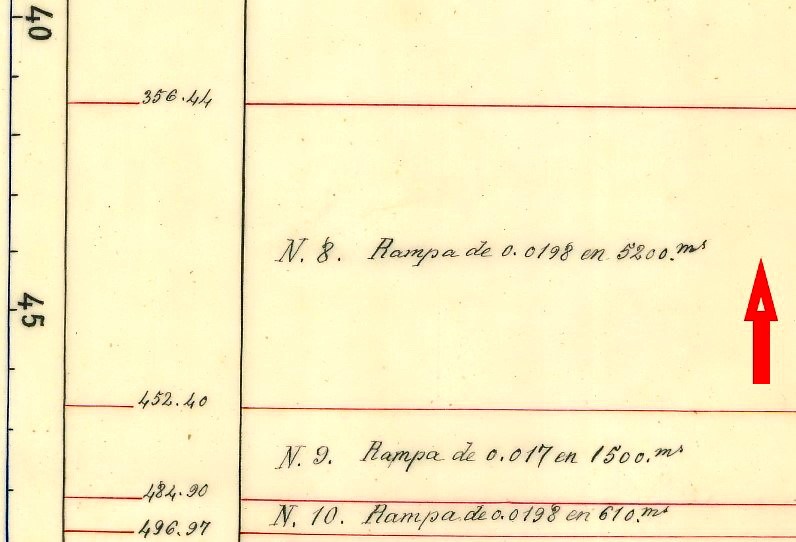 40
356.44
N. 8. Rampa de 0.0198 en 5200.ms
45
452.40
N. 9. Rampa de 0.017 en 1500.ms
484.90
N. 10. Rampa de 0.0198 en 610.ms
496.97